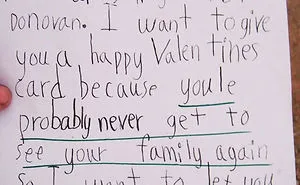 Donovan. I want to give
you a happy Valentines
card because youle
probably never get to
see your family again
So I want to let you